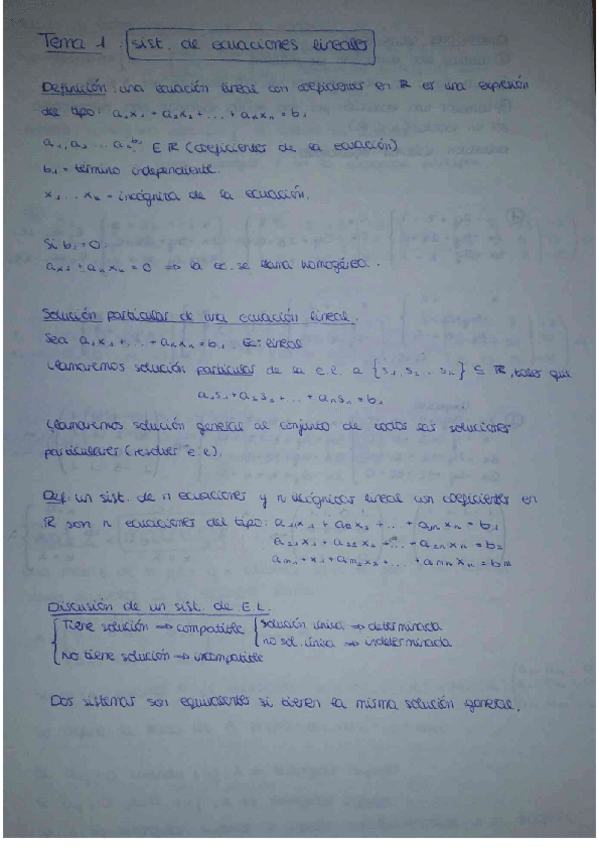 Tema 1. sist. de ecuaciones lineales
Definición: una ecuación lineal con coeficientes en ℝ es una expresión
del tipo: a₁x₁ + a₂x₂ + ... + aₙxₙ = b₁
a₁, a₂ ... aₙ ∈ ℝ (coeficientes de la ecuación)
b₁ = término independiente.
x₁ ... xₙ = incógnita de la ecuación.
Si b₁ = 0:
la ec. se llama homogénea.
Solución particular de una ecuación lineal.
Sea a₁x₁ + ... + aₙxₙ = b₁ Ec. lineal
Llamaremos solución particular de la e.l. a {s₁, s₂ ... sₙ} ⊆ ℝ, tales que
a₁s₁ + a₂s₂ + ... + aₙsₙ = b₁
Llamaremos solución general al conjunto de todas las soluciones
particulares (resolver e.l).
Def: un sist. de n ecuaciones y n incógnitas lineal con coeficientes en
ℝ son n ecuaciones del tipo: a₁₁x₁ + a₁₂x₂ + ... + a₁ₙxₙ = b₁
a₂₁x₁ + a₂₂x₂ + ... + a₂ₙxₙ = b₂
aₘ₁ + x₁ + aₘ₂x₂ + ... + aₘₙxₙ = bₘ
Discusión de un sist. de E.L.
{ Tiene solución ⇒ compatible { solución única ⇒ determinada
no sol. única ⇒ indeterminada
No tiene solución ⇒ incompatible
Dos sistemas son equivalentes si tienen la misma solución general.